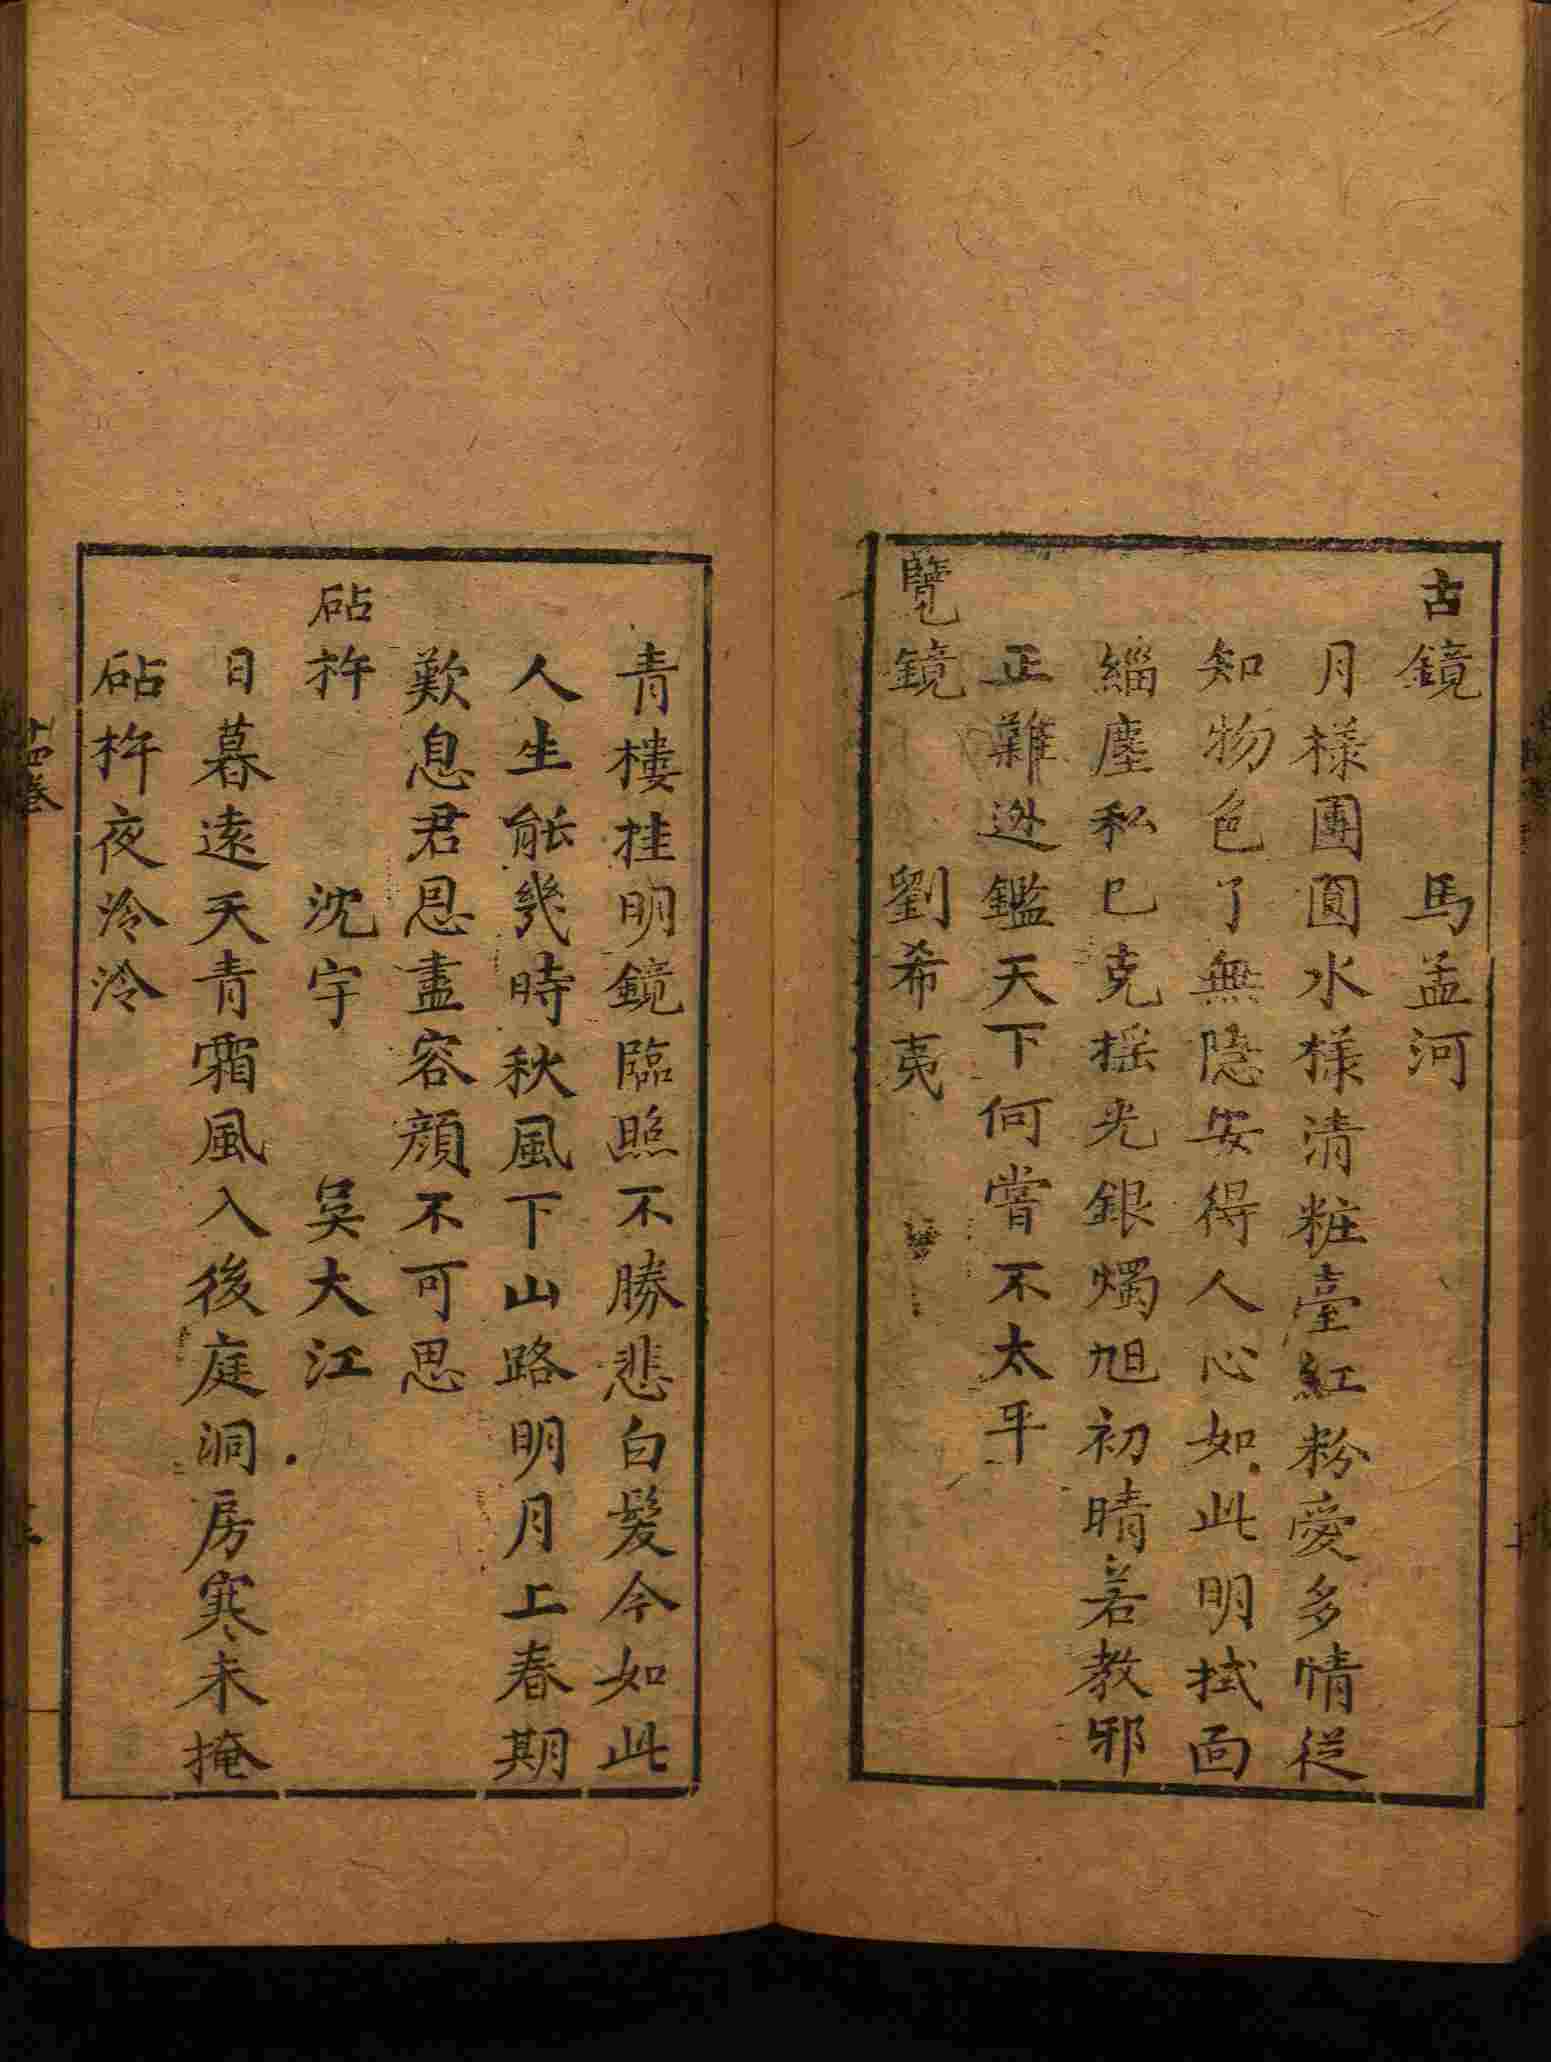 古鏡　馬孟河
月樣團圓水樣清粧臺紅粉愛多情從
知物色了無隱安得人心如此明拭面
緇塵私已克搖光銀燭旭初晴若教邪
正難逃鑑天下何嘗不太平
覽鏡　劉希夷
青樓挂明鏡臨照不勝悲白髮今如此
人生能幾時秋風下山路明月上春期
歎息君恩盡容顏不可思
砧杵　沈宇　吳大江
日暮遠天青霜風入後庭洞房寒未掩
砧杵夜泠泠
十四卷